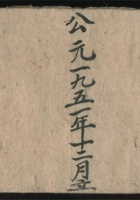 公元一九五一年十二月立